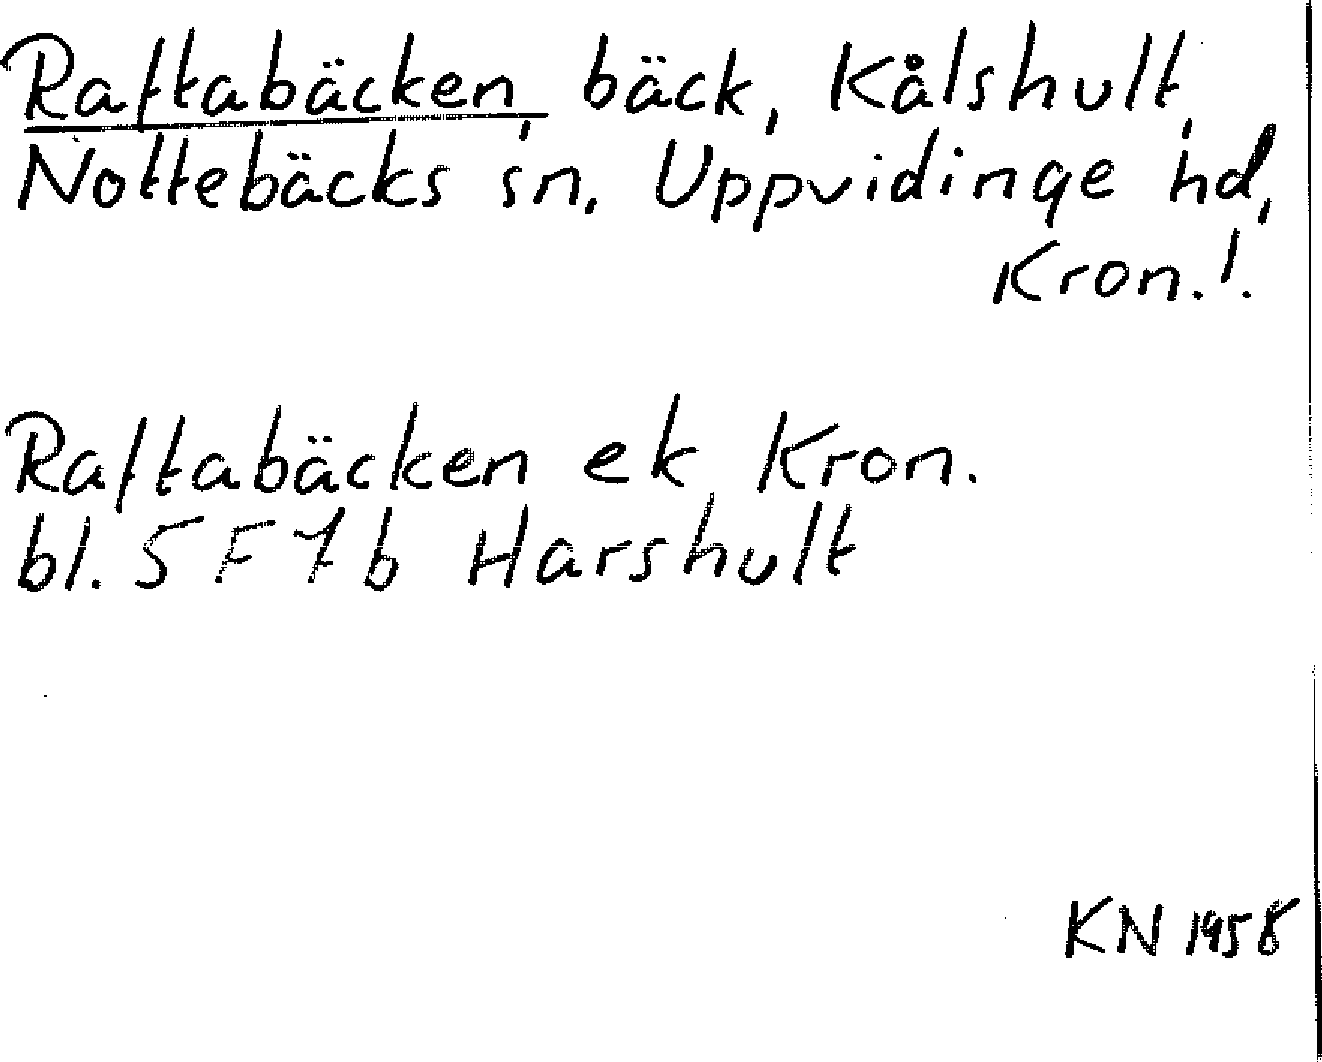 Raftabäcken, bäck, Kålshult,
Nottebäcks sn, Uppvidinge hd,
Kron.!.
Raftabäcken ek Kron.
bl. 5 F 7 b Harshult
KN 1958